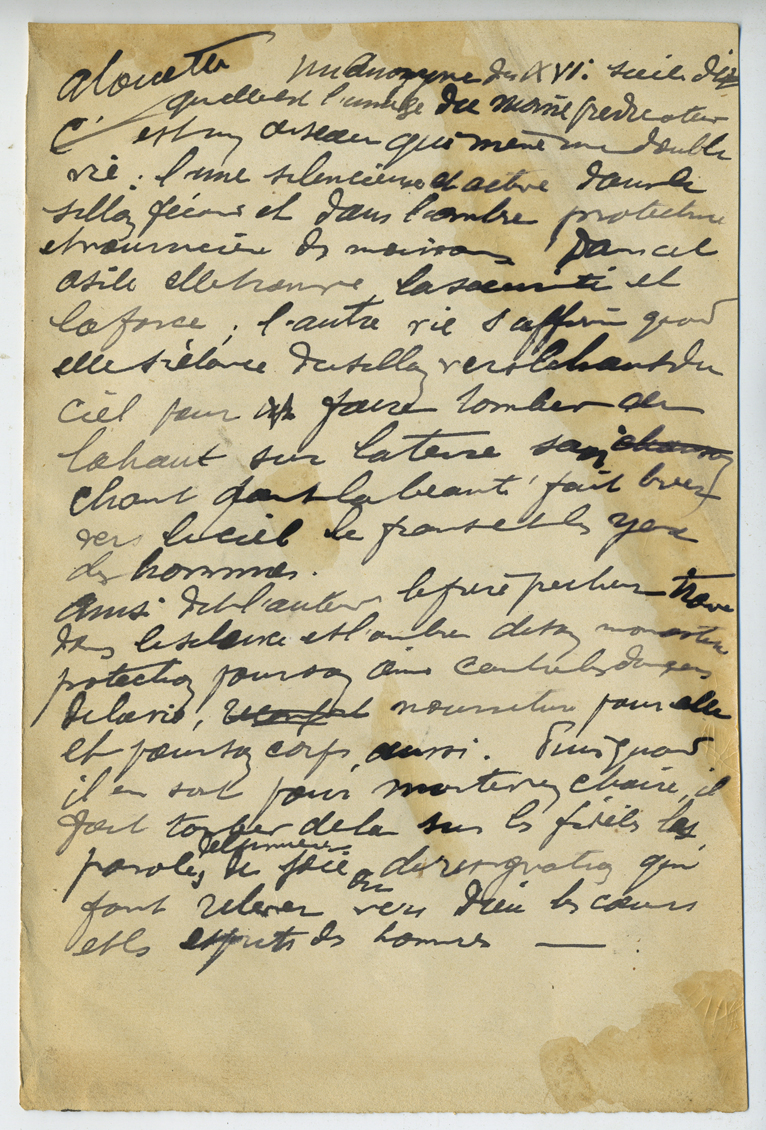 alouette un anonyme du XVIe siècle dit
qu'elle est l'image du moine predicateur
C'est un oiseau qui mène une double
vie : l'une silencieuse et active dans le
sillon fécond et dans l'ombre protectrice
et nourricière des moissons Dans cet
asile elle trouve la sécurité et
la force ; l'autre vie s'affirme quand
elle s'élance du sillon vers le haut du
ciel pour faire tomber de
la haut sur la terre son chanson
chant dont la beauté fait lever
vers le ciel le front et les yeux
des hommes.
Ainsi dit l'auteur le frère pecheur trouve
dans le silence et l'ombre de son monastère
protection pour son âme contre les dangers
de la vie, reconfort nourriture pour elle
et pour son corps aussi. Puis quand
il en sort pour monter en chaire, il
fait tomber de la sur les fidèles les
paroles, de lumière de joie ou de resignation qui
font relever vers Dieu les coeurs
et les esprits des hommes — .